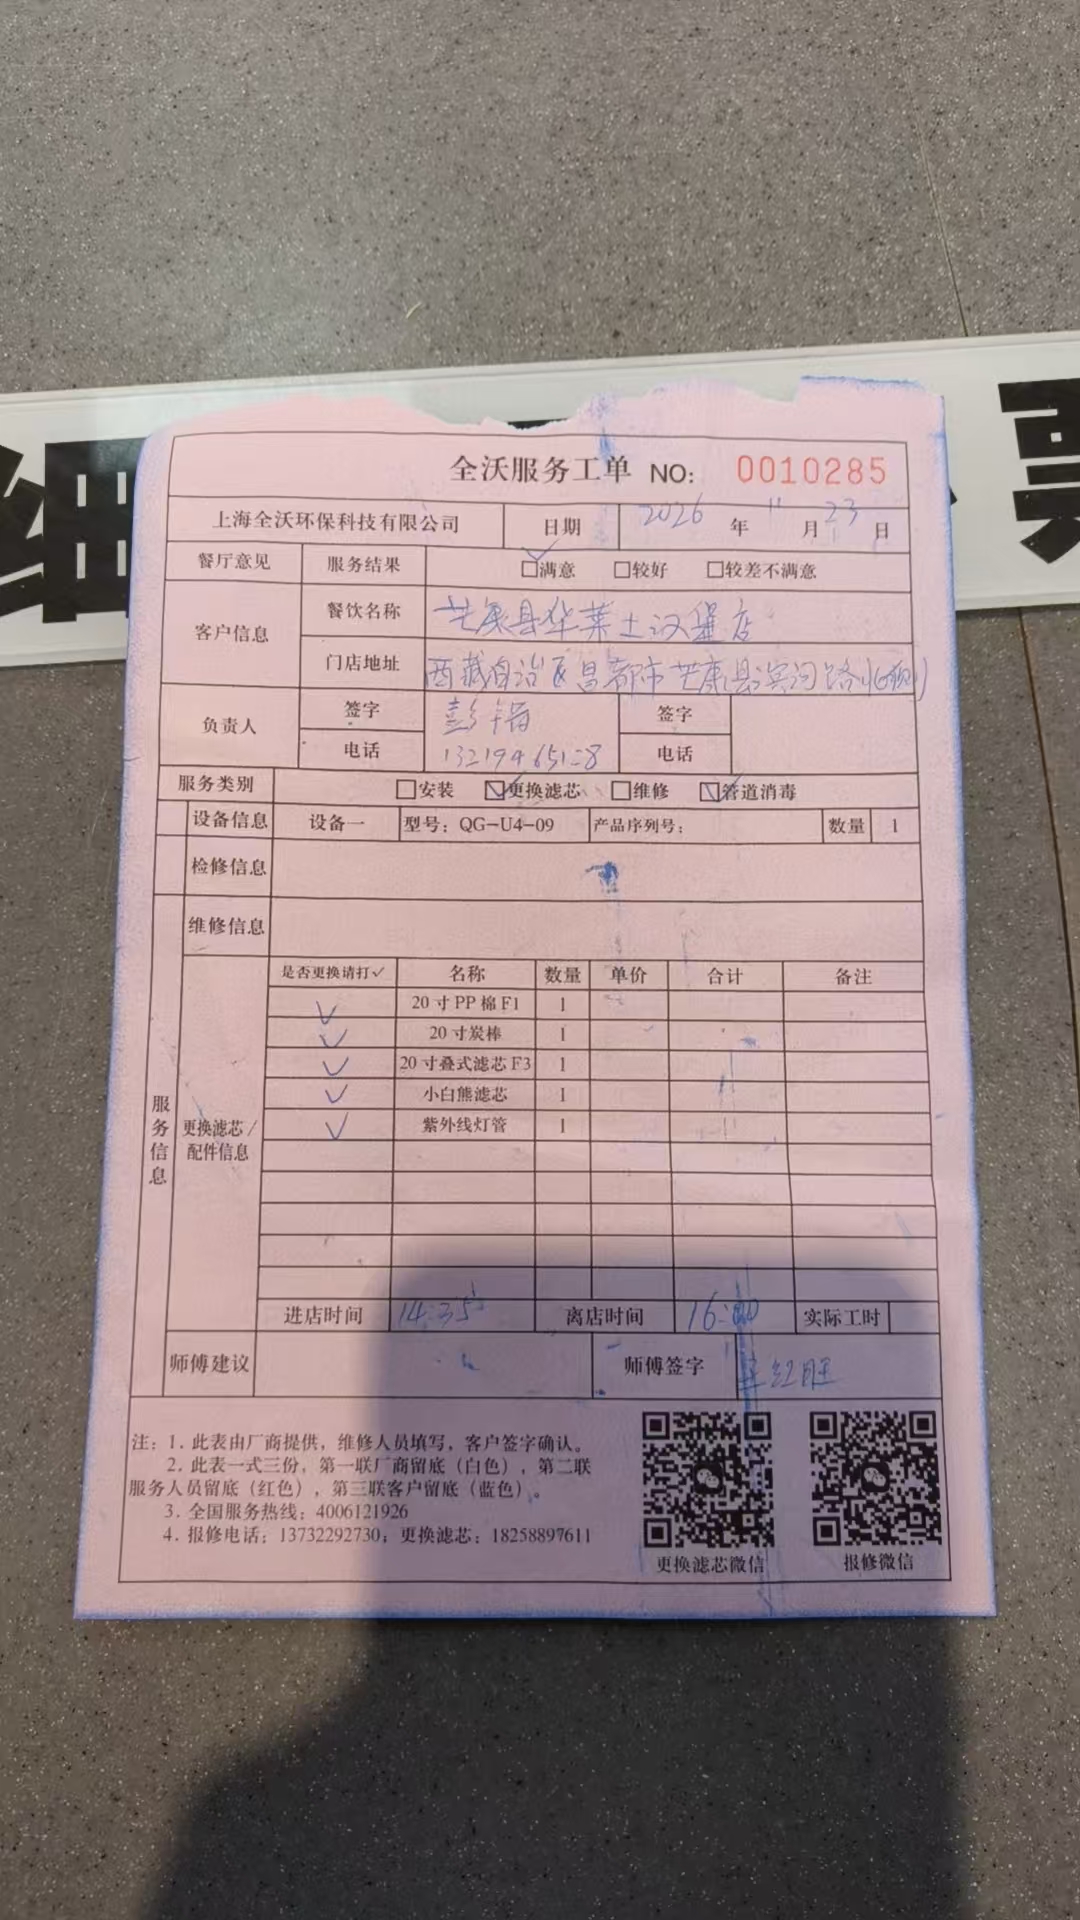 细
票
全沃服务工单 NO: 0010285
上海全沃环保科技有限公司 日期 2026 年 11 月 23 日
餐厅意见 服务结果 □满意 □较好 □较差不满意
客户信息 餐饮名称 芒康县华莱士汉堡店
门店地址 西藏自治区昌都市芒康县滨河路
负责人 签字 彭 签字
电话 电话
服务类别 □安装 ☑更换滤芯 □维修 ☑管道消毒
设备信息 设备一 型号：QG-U4-09 产品序列号： 数量 1
检修信息
维修信息
服务信息
更换滤芯/配件信息
是否更换请打✓ 名称 数量 单价 合计 备注
✓ 20寸PP棉F1 1
✓ 20寸炭棒 1
✓ 20寸叠式滤芯F3 1
✓ 小白熊滤芯 1
✓ 紫外线灯管 1
进店时间 14:35 离店时间 16:00 实际工时
师傅建议 师傅签字 红旺
注：1．此表由厂商提供，维修人员填写，客户签字确认。
2．此表一式三份，第一联厂商留底（白色），第二联
服务人员留底（红色），第三联客户留底（蓝色）。
3．全国服务热线：4006121926
4．报修电话：13732292730；更换滤芯：18258897611
更换滤芯微信 报修微信